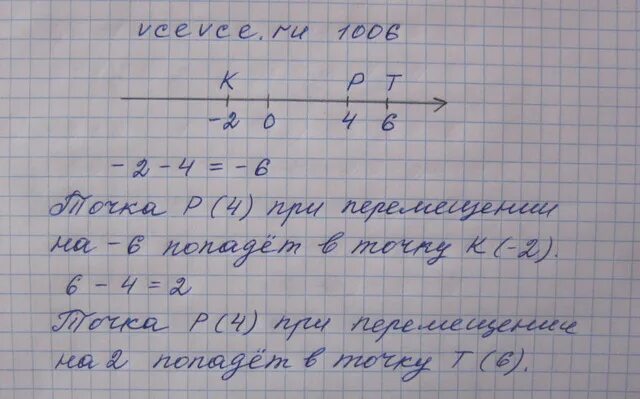 vcevce.ru 1006
K P T
-2 0 4 6
-2-4=-6
Точка P(4) при перемещении
на -6 попадёт в точку K(-2).
6-4=2
Точка P(4) при перемещении
на 2 попадёт в точку T(6).